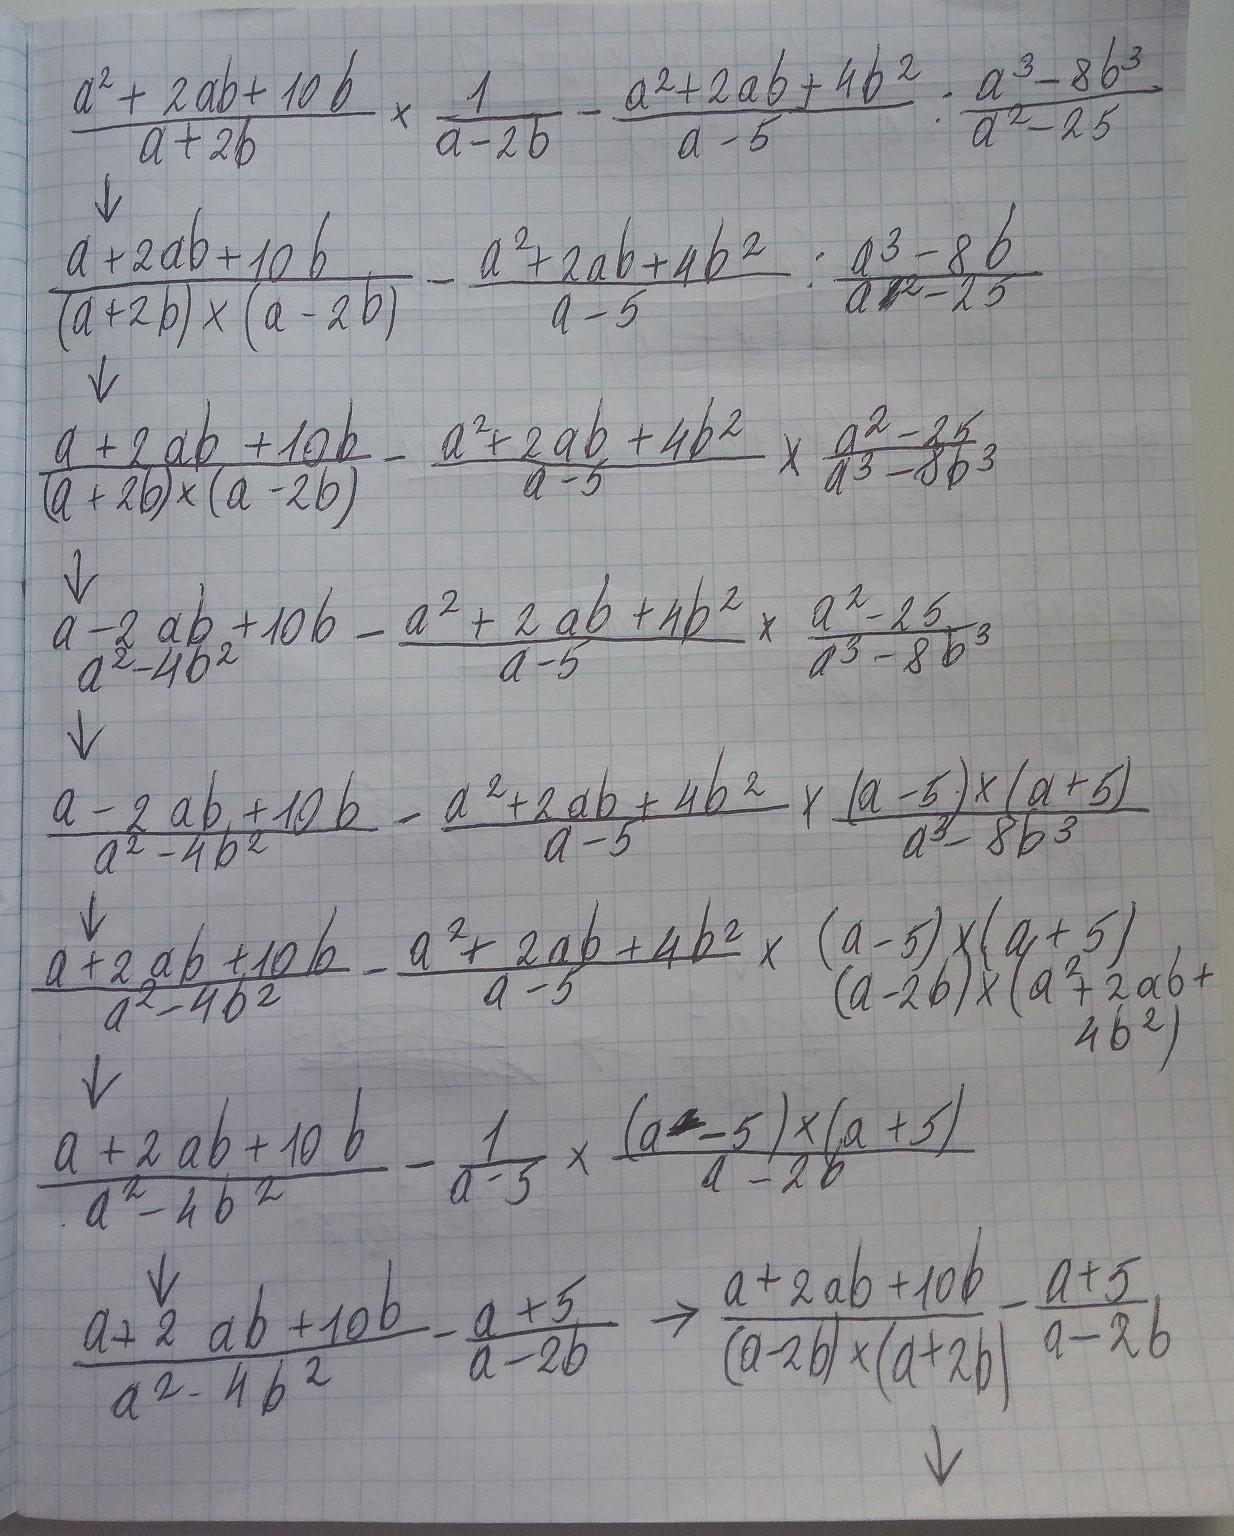 (a² + 2ab + 10b)/(a + 2b) × 1/(a - 2b) - (a² + 2ab + 4b²)/(a - 5) : (a³ - 8b³)/(a² - 25)
↓
(a + 2ab + 10b)/((a + 2b) × (a - 2b)) - (a² + 2ab + 4b²)/(a - 5) : (a³ - 8b)/(a² - 25)
↓
(a + 2ab + 10b)/((a + 2b) × (a - 2b)) - (a² + 2ab + 4b²)/(a - 5) × (a² - 25)/(a³ - 8b³)
↓
(a - 2ab + 10b)/(a² - 4b²) - (a² + 2ab + 4b²)/(a - 5) × (a² - 25)/(a³ - 8b³)
↓
(a - 2ab + 10b)/(a² - 4b²) - (a² + 2ab + 4b²)/(a - 5) × ((a - 5) × (a + 5))/(a³ - 8b³)
↓
(a + 2ab + 10b)/(a² - 4b²) - (a² + 2ab + 4b²)/(a - 5) × ((a - 5) × (a + 5))/((a - 2b) × (a² + 2ab + 4b²))
↓
(a + 2ab + 10b)/(a² - 4b²) - 1/(a - 5) × ((a - 5) × (a + 5))/(a - 2b)
↓
(a + 2ab + 10b)/(a² - 4b²) - (a + 5)/(a - 2b) → (a + 2ab + 10b)/((a - 2b) × (a + 2b)) - (a + 5)/(a - 2b)
↓